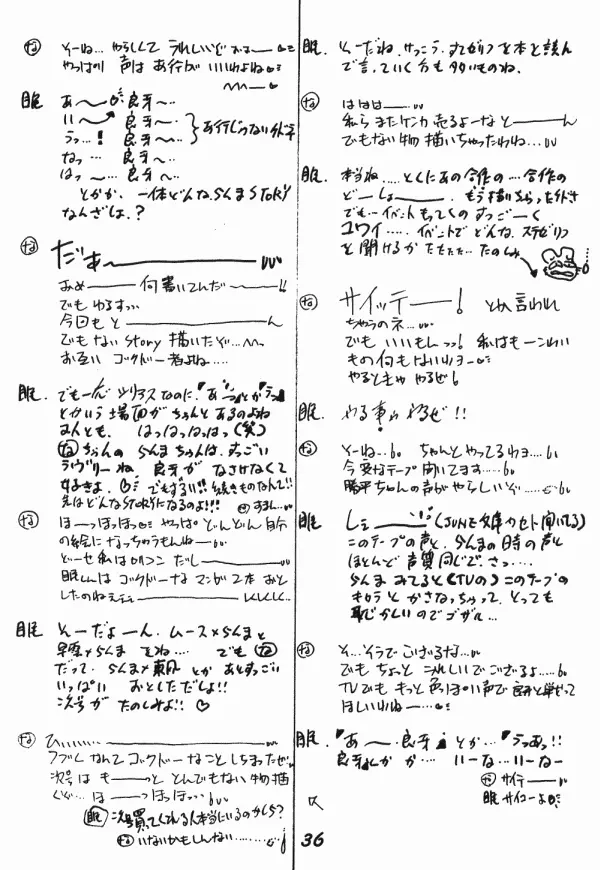 な そーね… やらしくて うれしいけど おほーーー
やっぱり 声は あ行が いいわよねー
眠 あ〜 良牙〜‥
い〜 良牙〜‥ あ行じゃない
うっ…! 良牙〜‥
なっ… 良牙〜‥
はっ〜… 良牙〜‥
とかか。一体どんならんまSTORY
なんざしょ。?
な だぁーーー
あめーーー何書いてんだーーー!!
でも ゆるすっ‥
今回も とーーーん
でもない story 描いたぞ…
お互い ゴクドー者よね‥‥
眠. でも一応 シリアスなのに「あ
とかいう場面が ちゃんと あるのよね
みんとも. はっはっはっはっ(笑)
な ちゃんの らんまちゃんは. すっごい
ラヴリーね. 良牙が なさけなくて
好きよ. でもずるい!! 続きものなんて!!
先はどんなSTORYになるのよ!!!
な ほーっほっほっ やっぱ どんどん 自分
の絵になっちゃうもんねー
どーせ私は ロリコン だし
眠くんは ゴクドーな マンガ 2本 おと
したのねぇ
眠 そーだよーん. ムース×らんまと
早雲×らんま でね… でも な
だって. らんま×東風 とか あとすっごい
いっぱい おとしただしょ!!
次号が たのしみよ!! ♡
な ひぃ‥‥‥
つづく なんて ゴクドーなこと しちまったぜぃ
次号は もーーっと とんでもない物描
くぞ… ほーーっほっほ…
眠 次号買ってくれる人本当にいるのかしら?
な いないかもしんない………
眠. そーだね. けっこう. すてゼリフ を本と読ん
で言っていく方も多いものね.
な ははは―‥
私ら またケンカ売るよーな とーーーん
でもない物 描いちゃったわね…
眠. 本当ね‥‥ とくにあの合作の … 合作の
どーしょーーー. もう描いちゃった
でも… イベント もってくの すっごーく
コワイ…… イベントで どんな. ステゼリフ
を聞けるか たたた… たのしみ
な サイッテーーー! とか言われ
ちゃうのネ…
でも いいもんっっ! 私はもーこわい
もの何もないわヨー
やるときゃ やるぜ!
眠. やる事ゃ やるぜ!!
な そーね… ちゃんとやってるわヨ‥‥
今 変なテープ 聞いてます……
勝平ちゃんの声が やらしいぞ……
眠 しぇーーー(JUNE文庫カセット聞いてる)
このテープの声と. らんまの時の声と
ほとんど 声質 同じで. さっ…
らんま みてると(TVの) このテープの
キャラと かさなっちゃって. とっても
恥じかしいのでゴザル…
な そ…そうでござるな…
でも ちょっと うれしいでござるよ…
TVでも もっと 色っぽい声で 良牙と
ほしいわねー
眠. 「あ〜.良牙」とか…「うっあっ!!
良牙くんか か… いーな…いーなー
な サイテーー
眠 サイコーよ
36